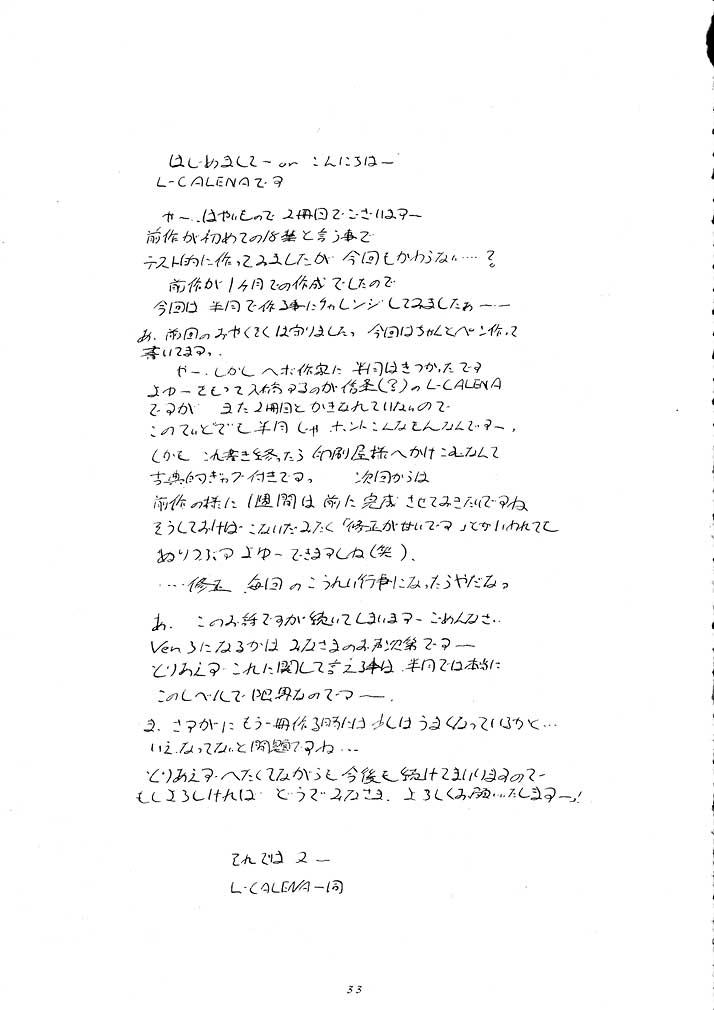 はじめましてー or こんにちはー
L-CALENAです
やー、はやいもので 2冊目でございますー
前作が初めての18禁と言う事で
テスト的に作ってみましたが 今回もかわらない……？
前作が1ヶ月での作成でしたので
今回は 半月で作る事にチャレンジしてみましたぁーー
あ、前回のおやくそくは守りましたっ 今回はちゃんとペン作って
書いてますっ、
やー、しかし ヘボ作家に 半月はきつかったです
よゆーをもって入稿するのが信条(？)の L-CALENA
ですが まだ2冊目とかきなれていないので
このていどでも半月じゃ ホントこんなもんなんですー、
しかも これ書き終ったら 印刷屋様へかけこむなんて
古典的ギャグ付きです。 次回からは
前作の様に 1週間は前に完成させておきたいですね
そうしておけば こないだみたく「修正が甘いです」とかいわれても
ぬりつぶす よゆーできますしね(笑)、
……修正 毎回のこうれい行事になったらやだなっ
あ、 このお話ですが続いてしまいますー ごめんなさい
Ver 3になるかは みなさまのお声次第ですー
とりあえず これに関して言える事は 半月では本当に
このレベルで限界なのですー、
ま、さすがに もう一冊作る時には 少しはうまくなっているかと…
いえ、なってないと問題ですね…
とりあえず へたくそながらも 今後も 続けてまいりますので
もしよろしければ どうぞみなさま、よろしくお願いいたしますーっ！
それでは 2ー
L-CALENA一同
33